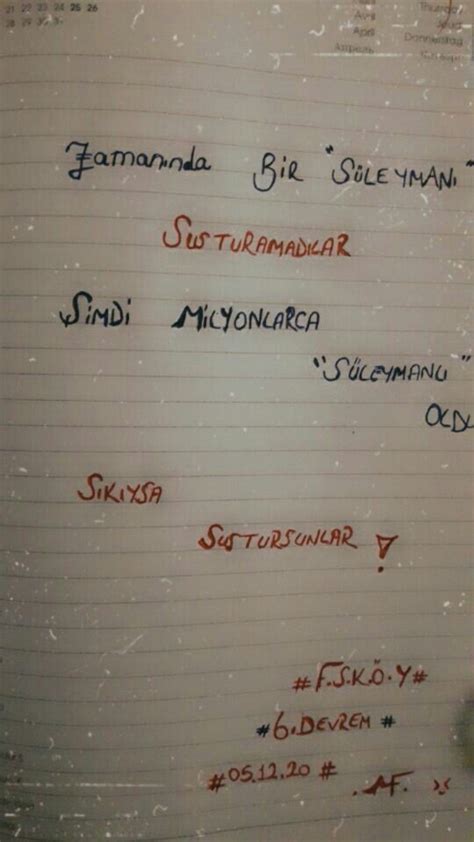 21 22 23 24 25 26
28 29 30
April
Zamanında BİR "SÜLEYMANI"
SUSTURAMADILAR
ŞİMDİ MİLYONLARCA
"SÜLEYMANLI"
OLDU
SIKIYSA
SUSTURSUNLAR !
#F.S.K.Ö.Y#
#6.DEVREM #
#05.12.20 #